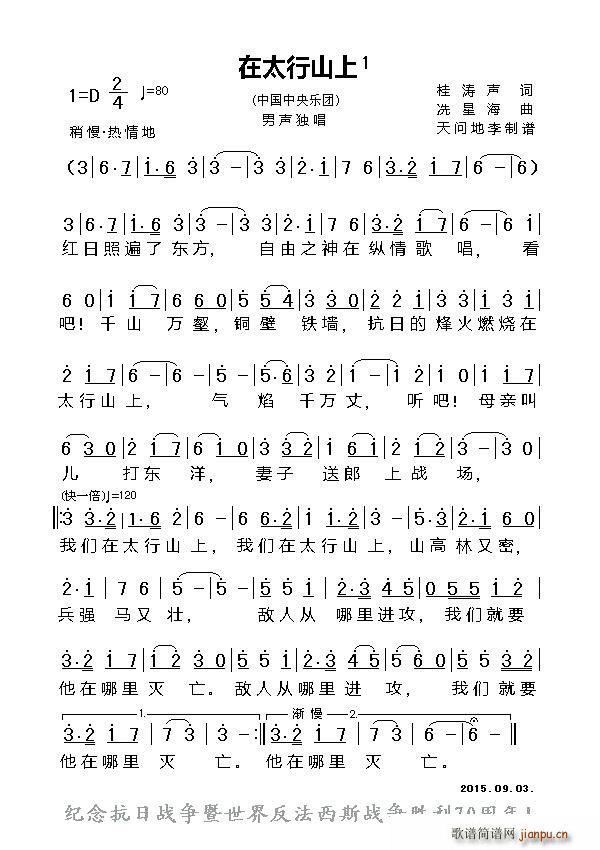 在太行山上1
1=D 2/4 ♩=80
(中国中央乐团)
男声独唱
桂涛声 词
冼星海 曲
天问地李制谱
稍慢·热情地
(3|6·7|i·6|3 -|3 3|2·i|7 6|3·2|i7|6 -|6 -)
3|6·7|i·6|3 3|3·3|2·i|7 6|3·2 i7|6 -|6 i|
红日照遍了东方, 自由之神在纵情歌唱, 看
6 0|i i7|6 60|5 54|3 30|2 2i|33|i3i|
吧!千山万壑,铜壁铁墙,抗日的烽火燃烧在
2 i7|6 -|6 -|5 -|5·6|i i|2 -|i 2|i 0|2 i|
太行山上, 气焰千万丈, 听吧!母亲叫
6 30|2 i7|6i0|3 32|i 6i|2 i2|3 -|3 0|
儿打东洋, 妻子送郎上战场,
(快一倍)♩=120
3 3·2|i·6 2|7 6 -|6 6·2|7 6|5 -|5·6|2·2i|60|
我们在太行山上,我们在太行山上,山高林又密,
2·i|7 6|5 -|5 -|5 5i|3·2 45|0 55 5i|
兵强马又壮, 敌人从哪里进攻,我们就要
3·2 i7|i2 30|5 5i|3·2 45|5 60|5 5 32|
他在哪里灭亡。敌人从哪里进攻,我们就要
1.
渐慢
2.
3·2 i7|73|6 -:|3·2 i7|73|6 -|6 -|
他在哪里灭亡。他在哪里灭亡。
2015.09.03.
纪念抗日战争暨世界反法西斯战争胜利70周年!
歌谱简谱网
jianpu.cn